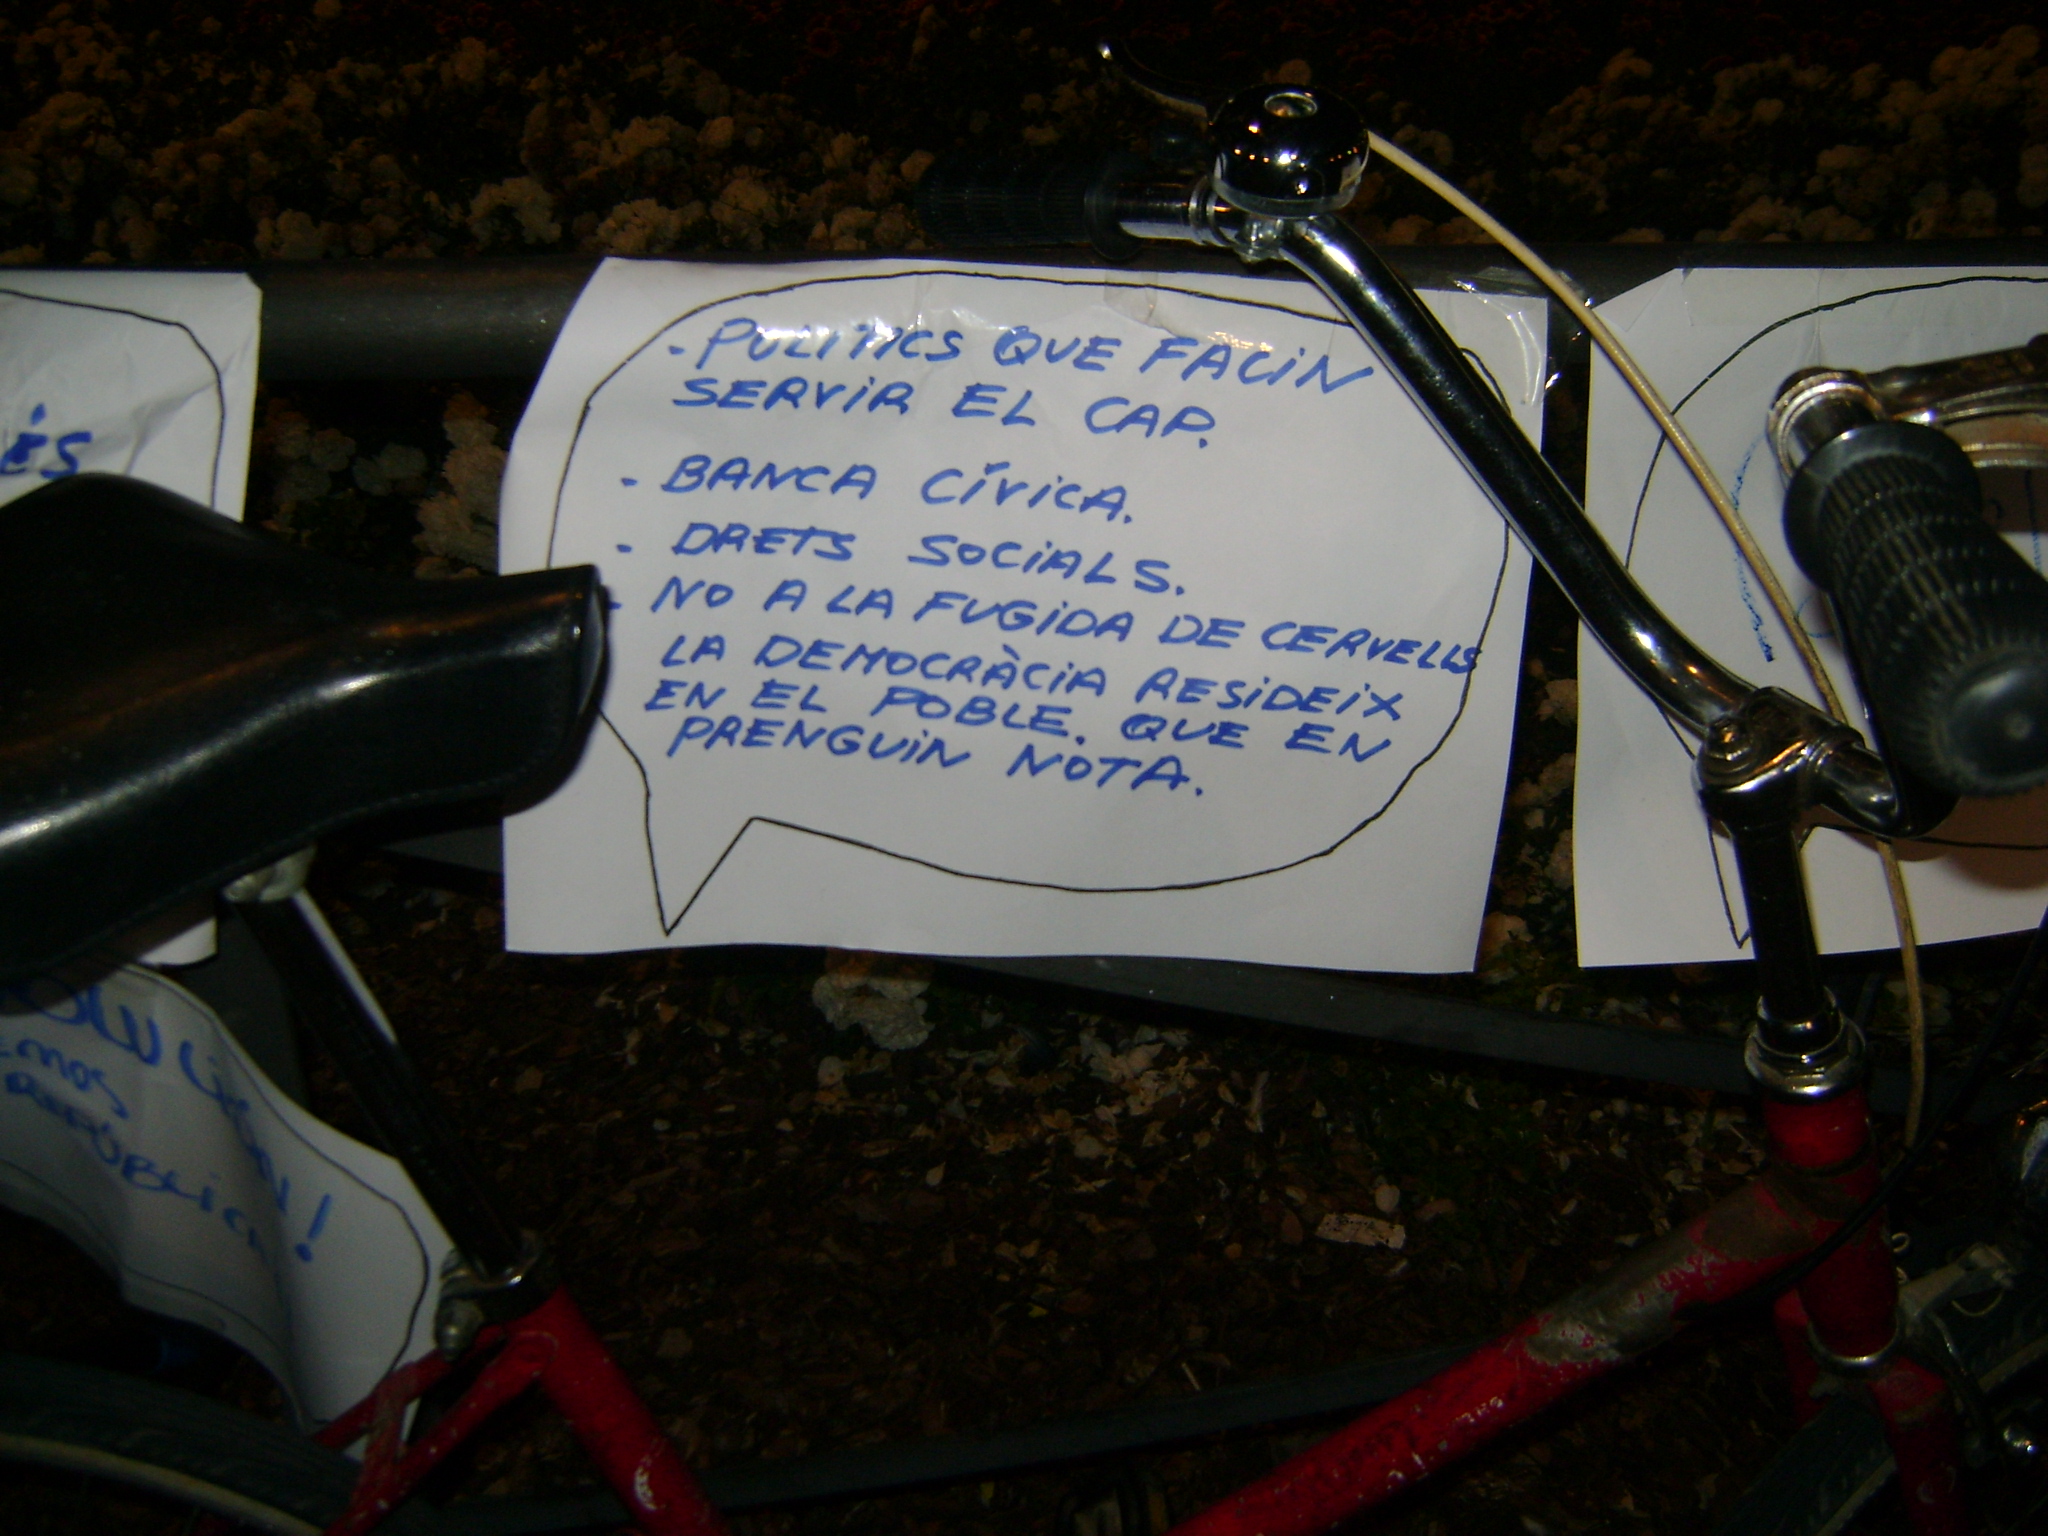 - POLÍTICS QUE FACIN
SERVIR EL CAP.
- BANCA CÍVICA.
- DRETS SOCIALS.
- NO A LA FUGIDA DE CERVELLS
LA DEMOCRÀCIA RESIDEIX
EN EL POBLE. QUE EN
PRENGUIN NOTA.
ÉS